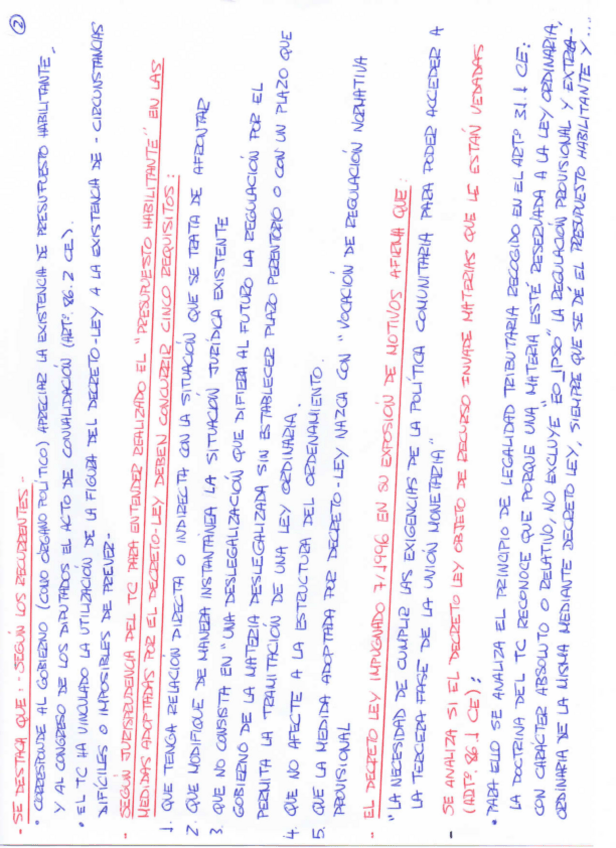 ②
- SE DESTACA QUE: - SEGÚN LOS RECURRENTES -
• CORRESPONDE AL GOBIERNO (COMO ÓRGANO POLÍTICO) APRECIAR LA EXISTENCIA DE PRESUPUESTO HABILITANTE,
Y AL CONGRESO DE LOS DIPUTADOS EL ACTO DE CONVALIDACIÓN (ARTº. 86.2 CE).
• EL TC HA VINCULADO LA UTILIZACIÓN DE LA FIGURA DEL DECRETO-LEY A LA EXISTENCIA DE - CIRCUNSTANCIAS
DIFÍCILES O IMPOSIBLES DE PREVER -
- SEGÚN JURISPRUDENCIA DEL TC PARA ENTENDER REALIZADO EL "PRESUPUESTO HABILITANTE" EN LAS
MEDIDAS ADOPTADAS POR EL DECRETO-LEY DEBEN CONCURRIR CINCO REQUISITOS:
1. QUE TENGA RELACIÓN DIRECTA O INDIRECTA CON LA SITUACIÓN QUE SE TRATA DE AFRONTAR
2. QUE MODIFIQUE DE MANERA INSTANTÁNEA LA SITUACIÓN JURÍDICA EXISTENTE
3. QUE NO CONSISTA EN "UNA DESLEGALIZACIÓN QUE DIFIERA AL FUTURO LA REGULACIÓN POR EL
GOBIERNO DE LA MATERIA DESLEGALIZADA SIN ESTABLECER PLAZO PERENTORIO O CON UN PLAZO QUE
PERMITA LA TRAMITACIÓN DE UNA LEY ORDINARIA.
4. QUE NO AFECTE A LA ESTRUCTURA DEL ORDENAMIENTO.
5. QUE LA MEDIDA ADOPTADA POR DECRETO-LEY NAZCA CON "VOCACIÓN DE REGULACIÓN NORMATIVA
PROVISIONAL
- EL DECRETO LEY IMPUGNADO 7/1996 EN SU EXPOSICIÓN DE MOTIVOS AFIRMA QUE:
"LA NECESIDAD DE CUMPLIR LAS EXIGENCIAS DE LA POLÍTICA COMUNITARIA PARA PODER ACCEDER A
LA TERCERA FASE DE LA UNIÓN MONETARIA"
- SE ANALIZA SI EL DECRETO LEY OBJETO DE RECURSO INVADE MATERIAS QUE LE ESTÁN VEDADAS
(ARTº. 86.1 CE):
• PARA ELLO SE ANALIZA EL PRINCIPIO DE LEGALIDAD TRIBUTARIA RECOGIDO EN EL ARTº 31.1 CE:
LA DOCTRINA DEL TC RECONOCE QUE PORQUE UNA MATERIA ESTÉ RESERVADA A LA LEY ORDINARIA,
CON CARÁCTER ABSOLUTO O RELATIVO, NO EXCLUYE "EO IPSO" LA REGULACIÓN PROVISIONAL Y EXTRA-
ORDINARIA DE LA MISMA MEDIANTE DECRETO LEY, SIEMPRE QUE SE DÉ EL PRESUPUESTO HABILITANTE Y ...